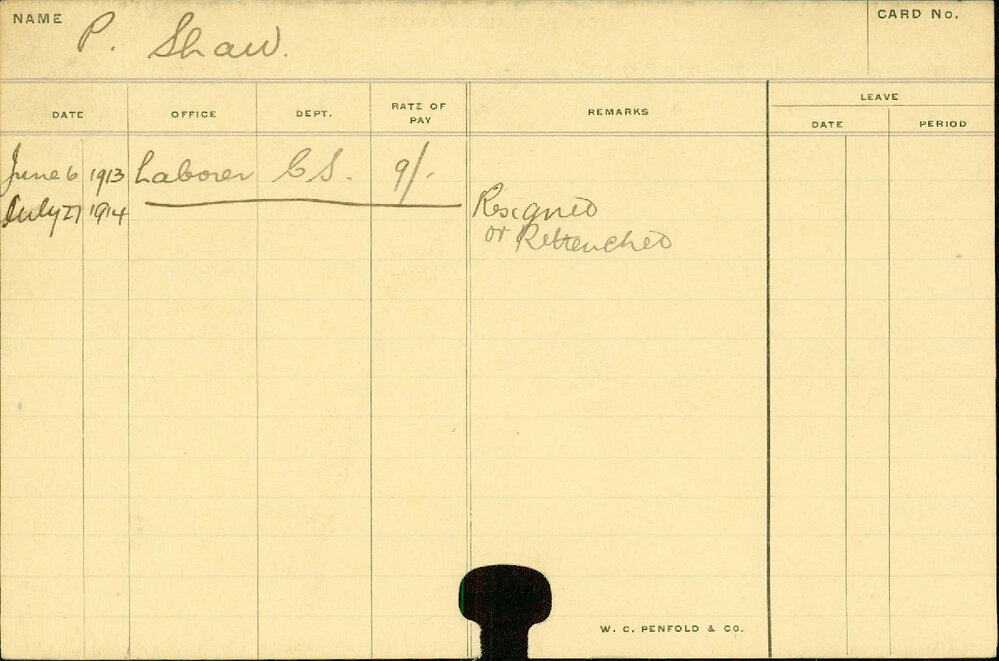 NAME P. Shaw. CARD No.
LEAVE
DATE OFFICE DEPT. RATE OF PAY REMARKS DATE PERIOD
June 6 1913 Laborer C S. 9/-
July 27 1914 Resigned
or Rettenched
W. C. PENFOLD & CO.